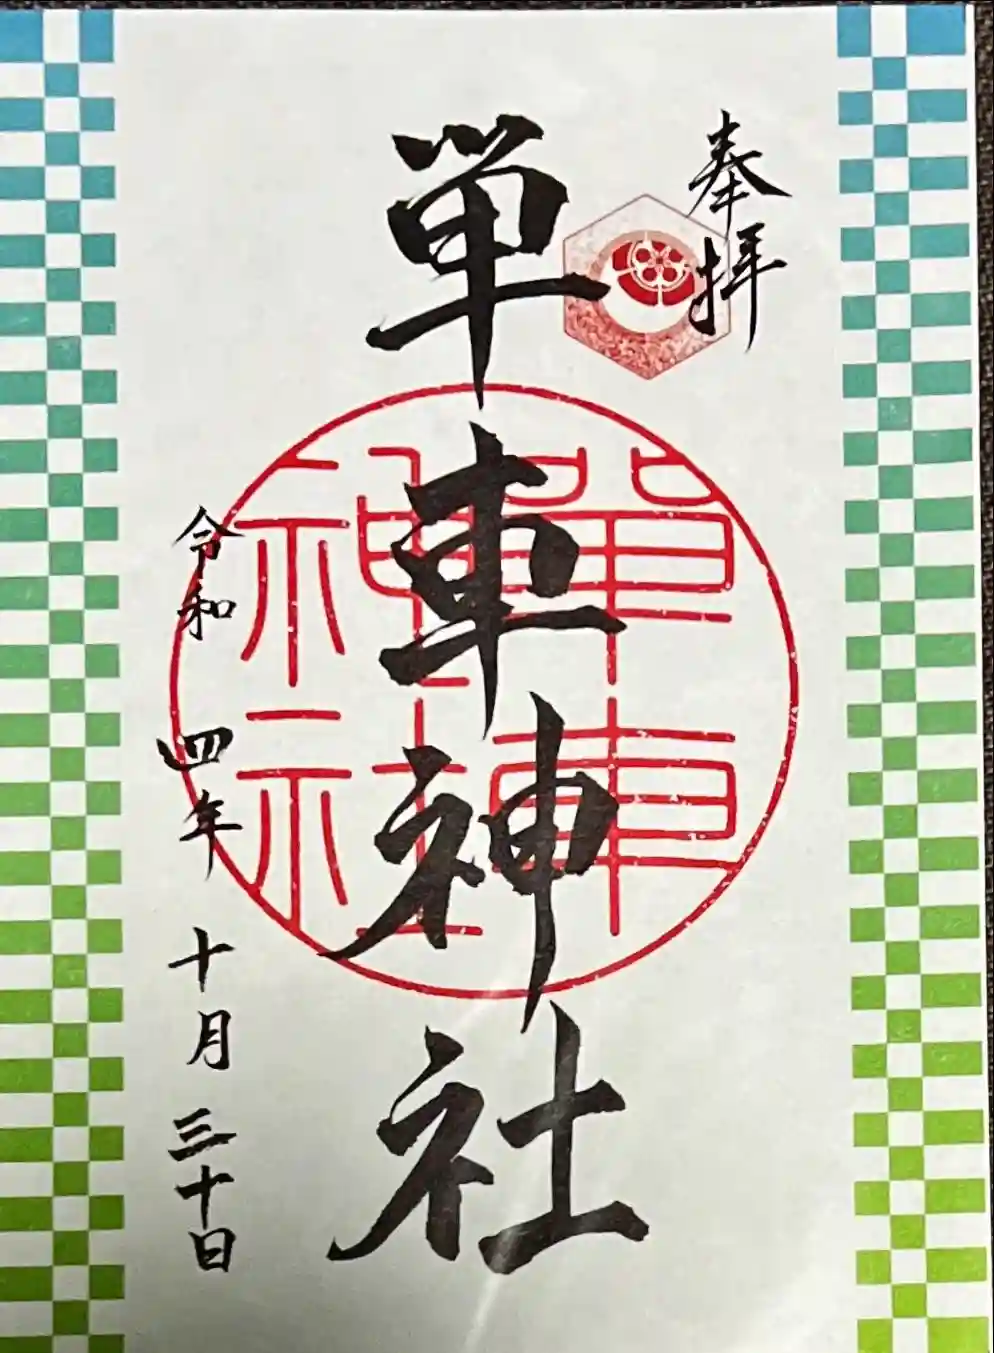 奉拝
単車神社
單車
神社
令和四年十月三十日